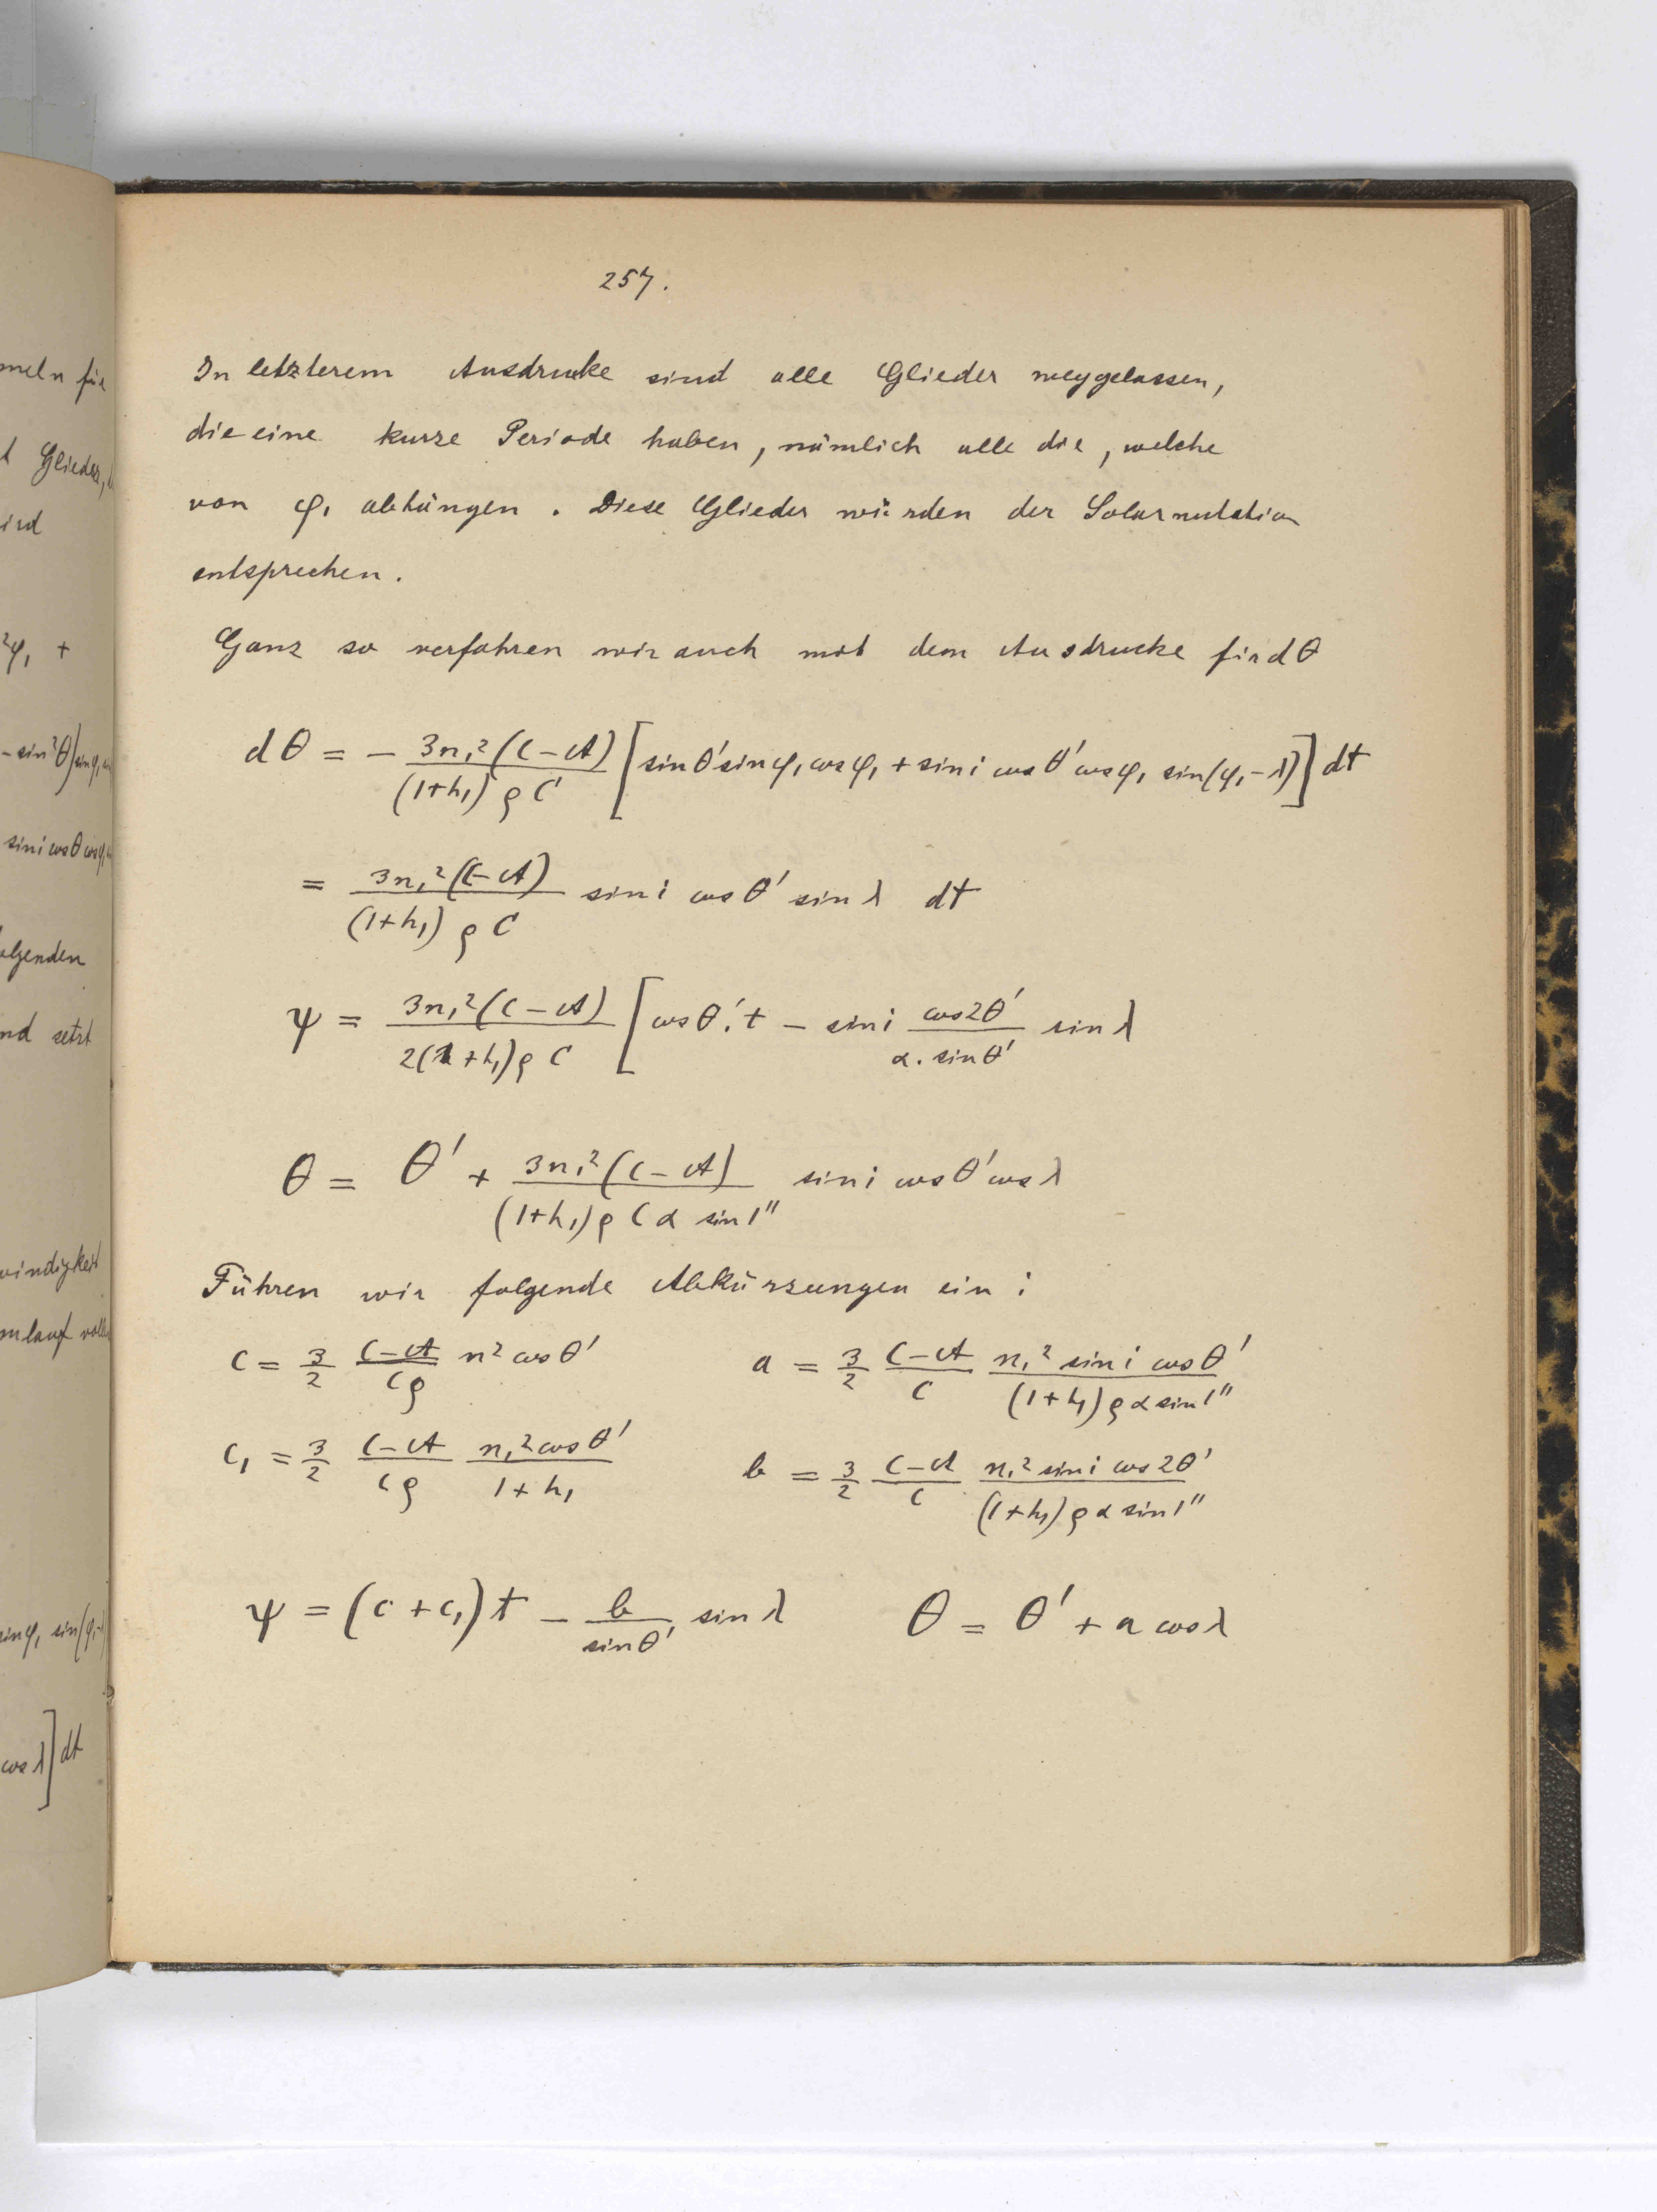 meln für
Glieder,
ird
²φ₁ +
- sin²θ) sinφ₁
sin i cosθ cosφ
olgenden
nd setzt
windigkeit
mlauf
sinφ₁ sin(φ₁-λ)
cos λ] dt
257.
In letzterem Ausdrucke sind alle Glieder weggelassen,
die eine kurze Periode haben, nämlich alle die, welche
von φ₁ abhängen. Diese Glieder würden der Solarnutation
entsprechen.
Ganz so verfahren wir auch mit dem Ausdrucke für dθ
dθ = - 3n₁²(C-A)/(1+h₁)ρC [sinθ' sinφ₁ cosφ₁ + sin i cosθ' cosφ₁ sin(φ₁-λ)] dt
= 3n₁²(C-A)/(1+h₁)ρC sin i cosθ' sinλ dt
ψ = 3n₁²(C-A)/2(1+h₁)ρC [cosθ'. t - sin i cos2θ'/α. sinθ' sinλ
θ = θ' + 3n₁²(C-A)/(1+h₁)ρCα sin1'' sin i cosθ' cosλ
Führen wir folgende Abkürzungen ein:
c = 3/2 C-A/Cρ n² cosθ' a = 3/2 C-A/C n₁² sin i cosθ'/(1+h₁)ρα sin1''
c₁ = 3/2 C-A/Cρ n₁² cosθ'/1+h₁ b = 3/2 C-A/C n₁² sin i cos2θ'/(1+h₁)ρα sin1''
ψ = (c+c₁)t - b/sinθ' sinλ θ = θ' + a cosλ